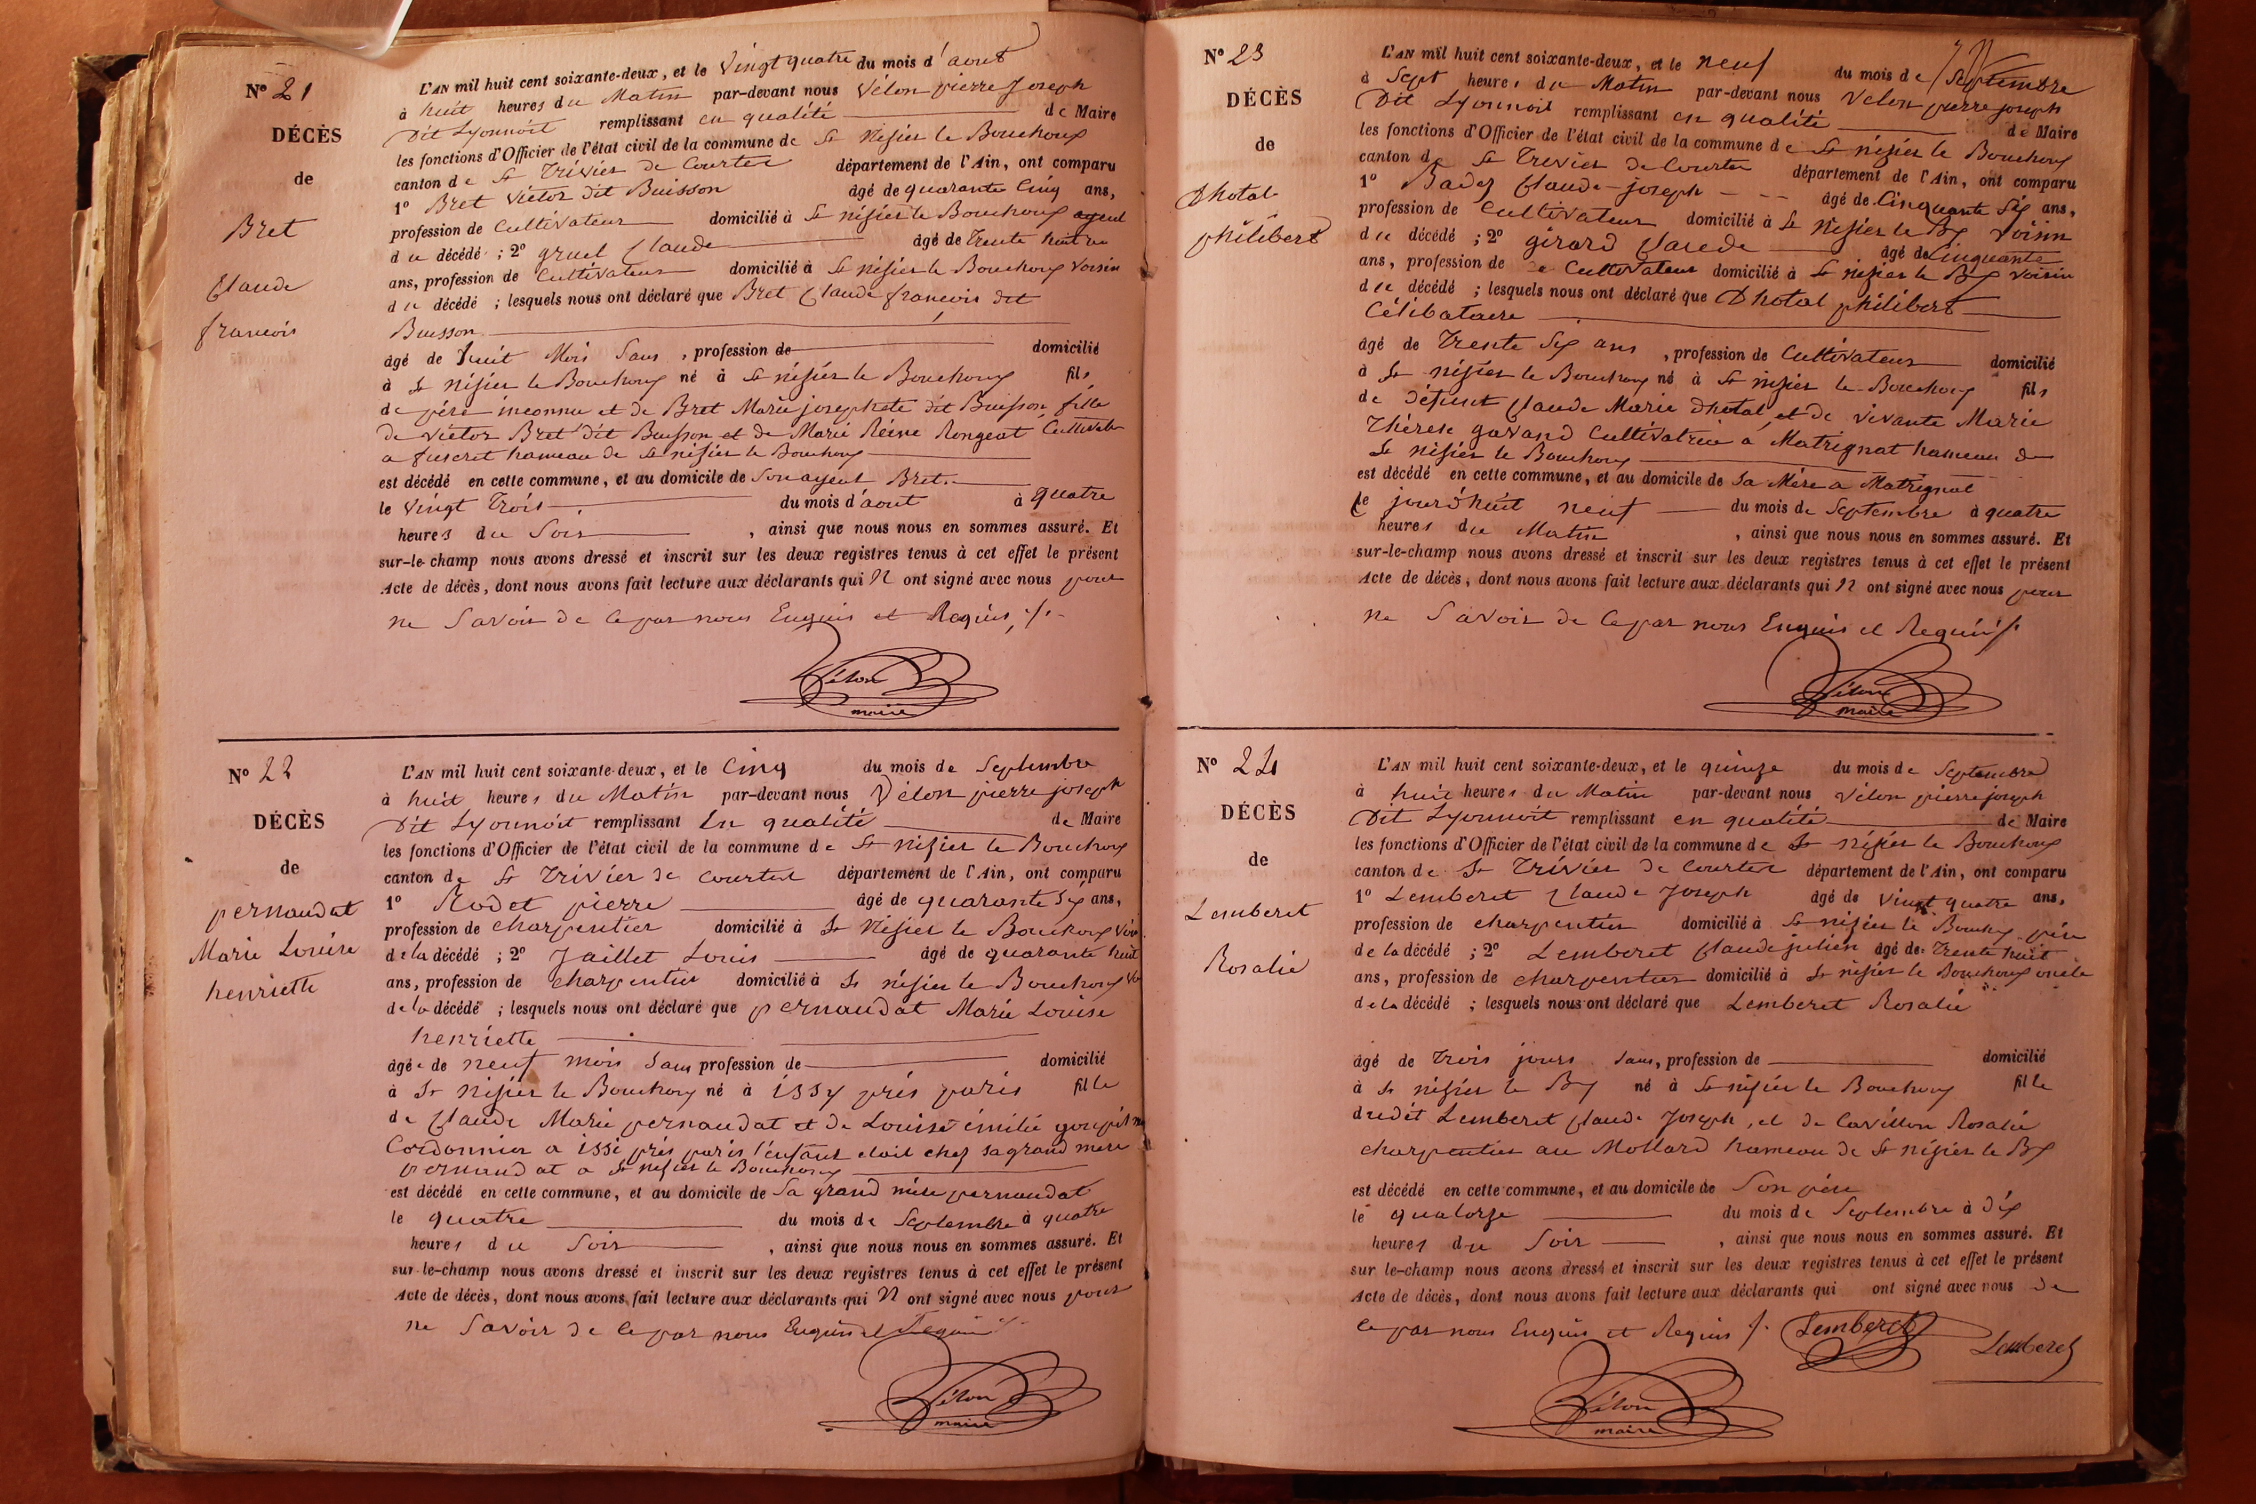 N° 21
DÉCÈS
de
Bret
Claude
francois
L'AN mil huit cent soixante-deux, et le vingt quatre du mois d'aout
à huit heures du Matin par-devant nous Vélon pierre Joseph
Dit Lyonnoit remplissant en qualité de Maire
les fonctions d'Officier de l'état civil de la commune de St Nizier le Bouchoux
canton de St Trivier de Courtes département de l'Ain, ont comparu
1° Bret Victor dit Buisson âgé de quarante Cinq ans,
profession de Cultivateur domicilié à St nizier le Bouchoux ayeul
du décédé ; 2° gruel Claude âgé de Trente huit
ans, profession de Cultivateur domicilié à St nizier le Bouchoux Voisin
du décédé ; lesquels nous ont déclaré que Bret Claude francois dit
Buisson
âgé de huit Mois Sans , profession de domicilié
à St nizier le Bouchoux né à St nizier le Bouchoux fils
de père inconnu et de Bret Marie josephete dit Buisson, fille
de Victor Bret dit Buisson et de Marie Réine Rongeat
a hameau de St nizier le Bouchoux
est décédé en cette commune, et au domicile de Son ayeul Bret
le Vingt Trois du mois d'aout à quatre
heures du Soir , ainsi que nous nous en sommes assuré. Et
sur-le-champ nous avons dressé et inscrit sur les deux registres tenus à cet effet le présent
Acte de décès, dont nous avons fait lecture aux déclarants qui N ont signé avec nous pour
ne Savoir de ce par nous Enquis et Requis ./.
Vélon
maire
N° 22
DÉCÈS
de
pernaudat
Marie Louise
henriette
L'AN mil huit cent soixante-deux, et le Cinq du mois de Septembre
à huit heures du Matin par-devant nous Vélon pierre joseph
Dit Lyonnoit remplissant En qualité de Maire
les fonctions d'Officier de l'état civil de la commune de St Nizier le Bouchoux
canton de St Trivier de Courtes département de l'Ain, ont comparu
1° Rodet pierre âgé de quarante Six ans,
profession de charpentier domicilié à St Nizier le Bouchoux
de la décédé ; 2° Jaillet Louis âgé de quarante huit
ans, profession de charpentier domicilié à St nizier le Bouchoux
de la décédé ; lesquels nous ont déclaré que pernaudat Marie Louise
henriette
âgée de neuf mois Sans profession de domicilié
à St nizier le Bouchoux né à issy prés paris fille
de Claude Marie pernaudat et de Louise émilié
Cordonnier a issi prés paris l'enfant etait chez sa grand mere
pernaudat a St nizier le Bouchoux
est décédé en cette commune, et au domicile de Sa grand mére pernaudat
le quatre du mois de Septembre à quatre
heures du Soir , ainsi que nous nous en sommes assuré. Et
sur-le-champ nous avons dressé et inscrit sur les deux registres tenus à cet effet le présent
Acte de décès, dont nous avons fait lecture aux déclarants qui N ont signé avec nous pour
ne Savoir de ce par nous Enquis et Requis
Vélon
maire
N° 23
DÉCÈS
de
Dhotal
philibert
L'AN mil huit cent soixante-deux, et le neuf du mois de Septembre
à Sept heures du Matin par-devant nous Vélon pierre joseph
Dit Lyonnoit remplissant en qualité de Maire
les fonctions d'Officier de l'état civil de la commune de St nizier le Bouchoux
canton de St Trivier de Courtes département de l'Ain, ont comparu
1° Badez Claude-joseph âgé de Cinquante Six ans,
profession de Cultivateur domicilié à St Nizier le Bx voisin
du décédé ; 2° girard Claude âgé de Cinquante
ans, profession de Cultivateur domicilié à St nizier le Bx voisin
du décédé ; lesquels nous ont déclaré que Dhotal philibert
Célibataire
âgé de Trente Six ans , profession de Cultivateur domicilié
à St nizier le Bouchoux né à St nizier le Bouchoux fils
de défunt Claude Marie dhotal, et de vivante Marie
Thérese gavand Cultivatrice a Matrignat hameau de
St Nizier le Bouchoux
est décédé en cette commune, et au domicile de Sa Mére a Matrignat
le jourd'huit neuf du mois de Septembre à quatre
heures du Matin , ainsi que nous nous en sommes assuré. Et
sur-le-champ nous avons dressé et inscrit sur les deux registres tenus à cet effet le présent
Acte de décès, dont nous avons fait lecture aux déclarants qui N ont signé avec nous pour
ne Savoir de ce par nous Enquis et Requis ./.
Vélon
maire
N° 24
DÉCÈS
de
Lemberet
Rosalie
L'AN mil huit cent soixante-deux, et le quinze du mois de Septembre
à huit heures du Matin par-devant nous Vélon pierre joseph
Dit Lyonnoit remplissant en qualité de Maire
les fonctions d'Officier de l'état civil de la commune de St nizier le Bouchoux
canton de St Trivier de Courtes département de l'Ain, ont comparu
1° Lemberet Claude Joseph âgé de Vingt quatre ans,
profession de charpentier domicilié à St nizier le Bouchoux père
de la décédé ; 2° Lemberet Claude julien âgé de Trente huit
ans, profession de charpentier domicilié à St nizier le Bouchoux oncle
de la décédé ; lesquels nous ont déclaré que Lemberet Rosalie
âgé de Trois jours Sans, profession de domicilié
à St nizier le Bx né à St nizier le Bouchoux fille
du dit Lemberet Claude Joseph, et de Cavillon Rosalie
charpentier au Mollard hameau de St nizier le Bx
est décédé en cette commune, et au domicile de Son père
le quatorze du mois de Septembre à Dix
heures du Soir , ainsi que nous nous en sommes assuré. Et
sur le-champ nous avons dressé et inscrit sur les deux registres tenus à cet effet le présent
Acte de décès, dont nous avons fait lecture aux déclarants qui ont signé avec nous de
ce par nous Enquis et Requis ./. Lemberet Lemberet
Vélon
maire